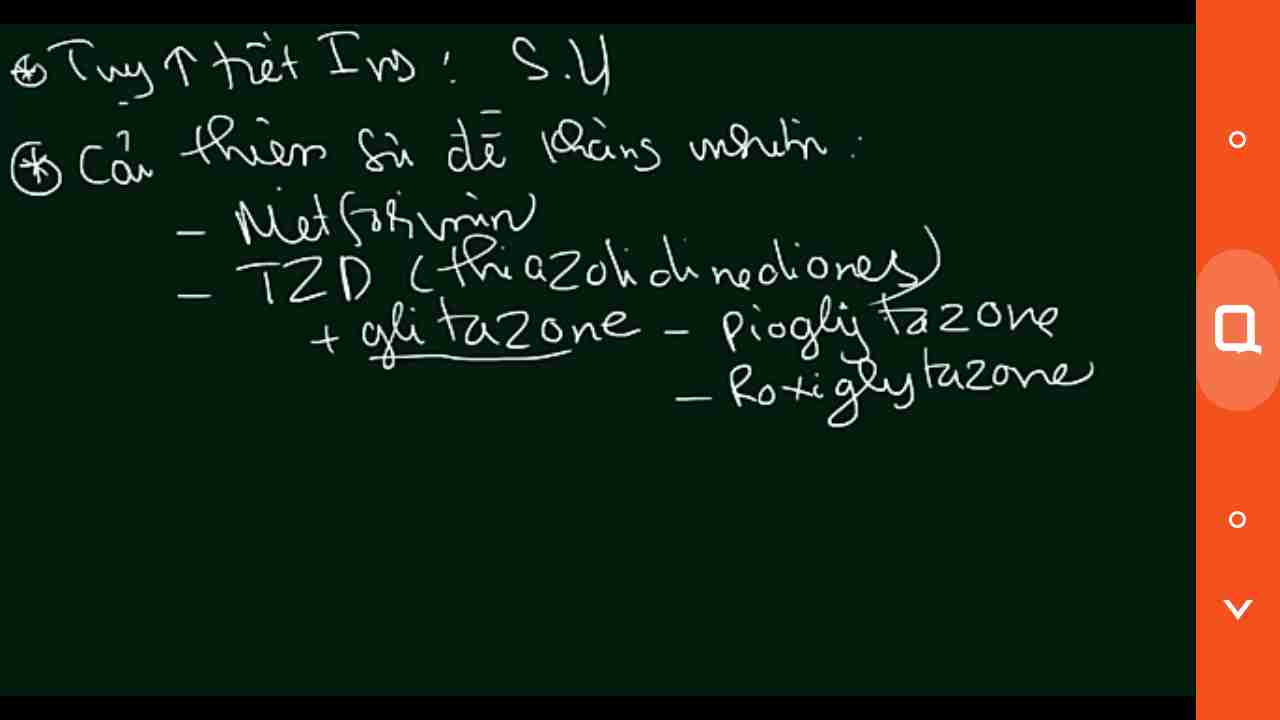 * Tụy ↑ tiết Ins : S.U
* Cải thiện sự đề kháng insulin :
- Metformin
- TZD (thiazolidinediones)
+ glitazone - Pioglytazone
- Roxiglytazone